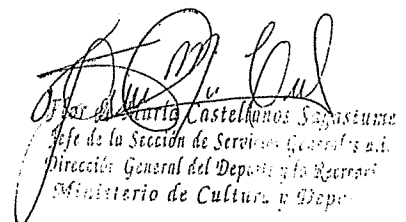 Flor de María Castellanos Sagastume
Jefe de la Sección de Servicios Generales a.i.
Dirección General del Deporte y la Recreaci
Ministerio de Cultura y Depo